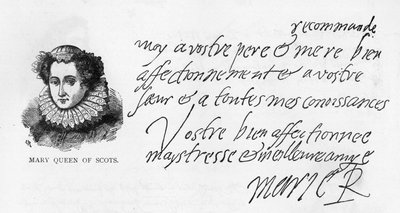 recommande
moy a vostre pere & mere bien
affectionnement & a vostre
sœur & a toutes mes conoissances
Vostre bien affectionnee
maystresse & meilleure amye
Marie R
MARY QUEEN OF SCOTS.